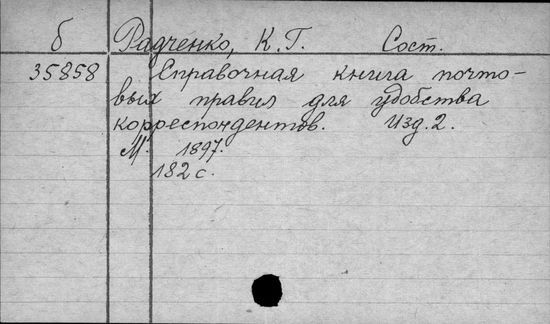 б Радченко, К.Г. Сост.
35858 Справочная книга почто-
вых правил для удобства
корреспондентов. Изд. 2.
М. 1897.
182 с.